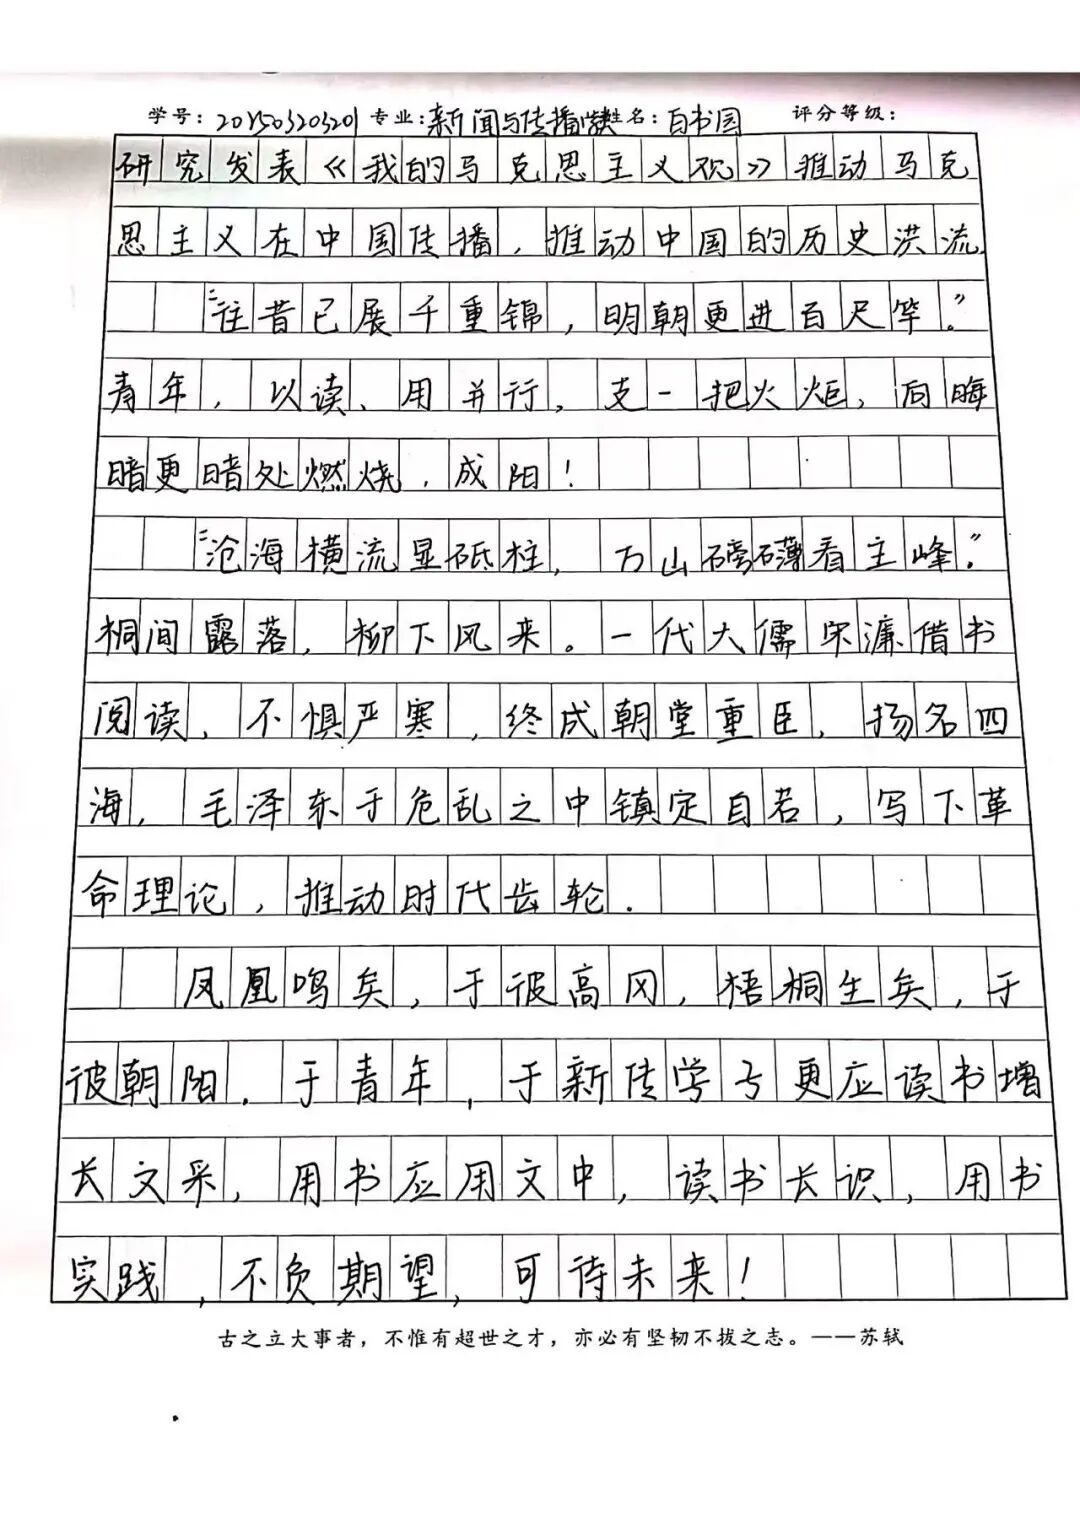 学号: 202503203201 专业: 新闻与传播学类 姓名: 白书园 评分等级:
研究发表《我的马克思主义观》推动马克
思主义在中国传播，推动中国的历史洪流.
“往昔已展千重锦，明朝更进百尺竿.”
青年，以读、用并行，支一把火炬，向晦
暗更暗处燃烧，成阳！
“沧海横流显砥柱，万山磅礴看主峰.”
桐间露落，柳下风来。一代大儒宋濂借书
阅读，不惧严寒，终成朝堂重臣，扬名四
海，毛泽东于危乱之中镇定自若，写下革
命理论，推动时代齿轮.
凤凰鸣矣，于彼高冈，梧桐生矣，于
彼朝阳. 于青年，于新传学子更应读书增
长文采，用书应用文中，读书长识，用书
实践，不负期望，可待未来！
古之立大事者，不惟有超世之才，亦必有坚韧不拔之志。——苏轼